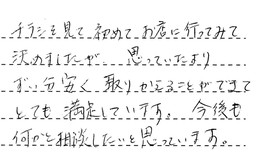 チラシを見て初めてお店に行ってみて
決めましたが、思っていたより
ずい分安く取りかえることができて
とても満足しています。今後も
何かと相談したいと思っています。